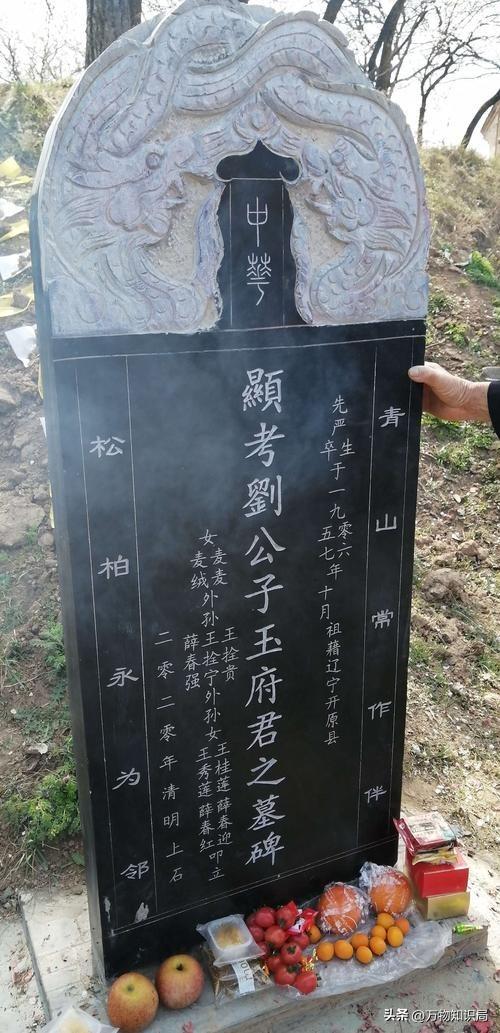 中華
青山常作伴
先严生卒于一九零六五七年十月祖籍辽宁开原县
顯考劉公子玉府君之墓碑
女麦麦麦绒外孙王拴贵王拴宁薛春强外孙女王桂莲薛春迎王秀莲薛春红叩立
二零二零年清明上石
松柏永为邻
头条 @万物知识局